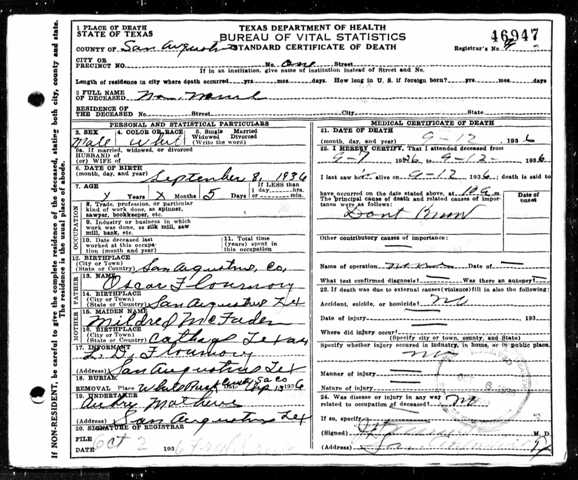 1 PLACE OF DEATH
STATE OF TEXAS
TEXAS DEPARTMENT OF HEALTH
BUREAU OF VITAL STATISTICS
STANDARD CERTIFICATE OF DEATH
46947
COUNTY OF San Augustine
Registrar's No.
CITY OR
PRECINCT NO. No. one Street
If in an institution, give name of institution instead of Street and No.
Length of residence in city where death occurred yrs. mos. days. How long in U. S. if foreign born? yrs. mos. days
2 FULL NAME
OF DECEASED
RESIDENCE OF
THE DECEASED No. Street City State
PERSONAL AND STATISTICAL PARTICULARS
3. SEX 4. COLOR OR RACE 5. Single Married
Widowed Divorced
(Write the word)
Male White
5a. If married, widowed, or divorced
HUSBAND of
(or) WIFE of
6. DATE OF BIRTH
(month, day, and year) September 8, 1936
7. AGE If LESS than 1 day,
x Years x Months 5 Days or hrs. min.
OCCUPATION
8. Trade, profession, or particular
kind of work done, as spinner,
sawyer, bookkeeper, etc.
9. Industry or business in which
work was done, as silk mill, saw
mill, bank, etc.
10. Date deceased last
worked at this occupa-
tion (month and year)
11. Total time (years)
spent in this
occupation
12. BIRTHPLACE
(City or Town)
(State or Country) San Augustine, Co,
FATHER
13. NAME Oscar Flournoy
14. BIRTHPLACE
(City or Town)
(State or Country) San Augustine Tex
MOTHER
15. MAIDEN NAME Mildred McFaden
16. BIRTHPLACE
(City or Town)
(State or Country) Carthage Texas
17. INFORMANT L. D. Flournoy
(Address) San Augustine Tex
18. BURIAL
REMOVAL Place White Rock
19. UNDERTAKER Aubry Mathews
(Address) San Augustine Tex
20. SIGNATURE OF REGISTRAR
FILE
DATE Oct 2 193
MEDICAL CERTIFICATE OF DEATH
21. DATE OF DEATH
(month, day, and year) 9-12 1936
22. I HEREBY CERTIFY, That I attended deceased from
9-7 1936 to 9-12- 1936
I last saw alive on 9-12 1936; death is said to
have occurred on the date stated above, at
The principal cause of death and related causes of impor-
tance were as follows: Date of
onset
Dont Know
Other contributory causes of importance:
Name of operation Date of
What test confirmed diagnosis? Was there an autopsy?
23. If death was due to external causes (violence) fill in also the following:
Accident, suicide, or homicide? No
Date of injury 193
Where did injury occur?
(Specify city or town, county, and state)
Specify whether injury occurred in industry, in home, or in public place.
No
Manner of injury
Nature of injury
24. Was disease or injury in any way
related to occupation of deceased? No
If so, specify
(Signed) M. D.
(Address)
If NON-RESIDENT, be careful to give the complete residence of the deceased, stating both, city, county and state.
The residence is the usual place of abode.